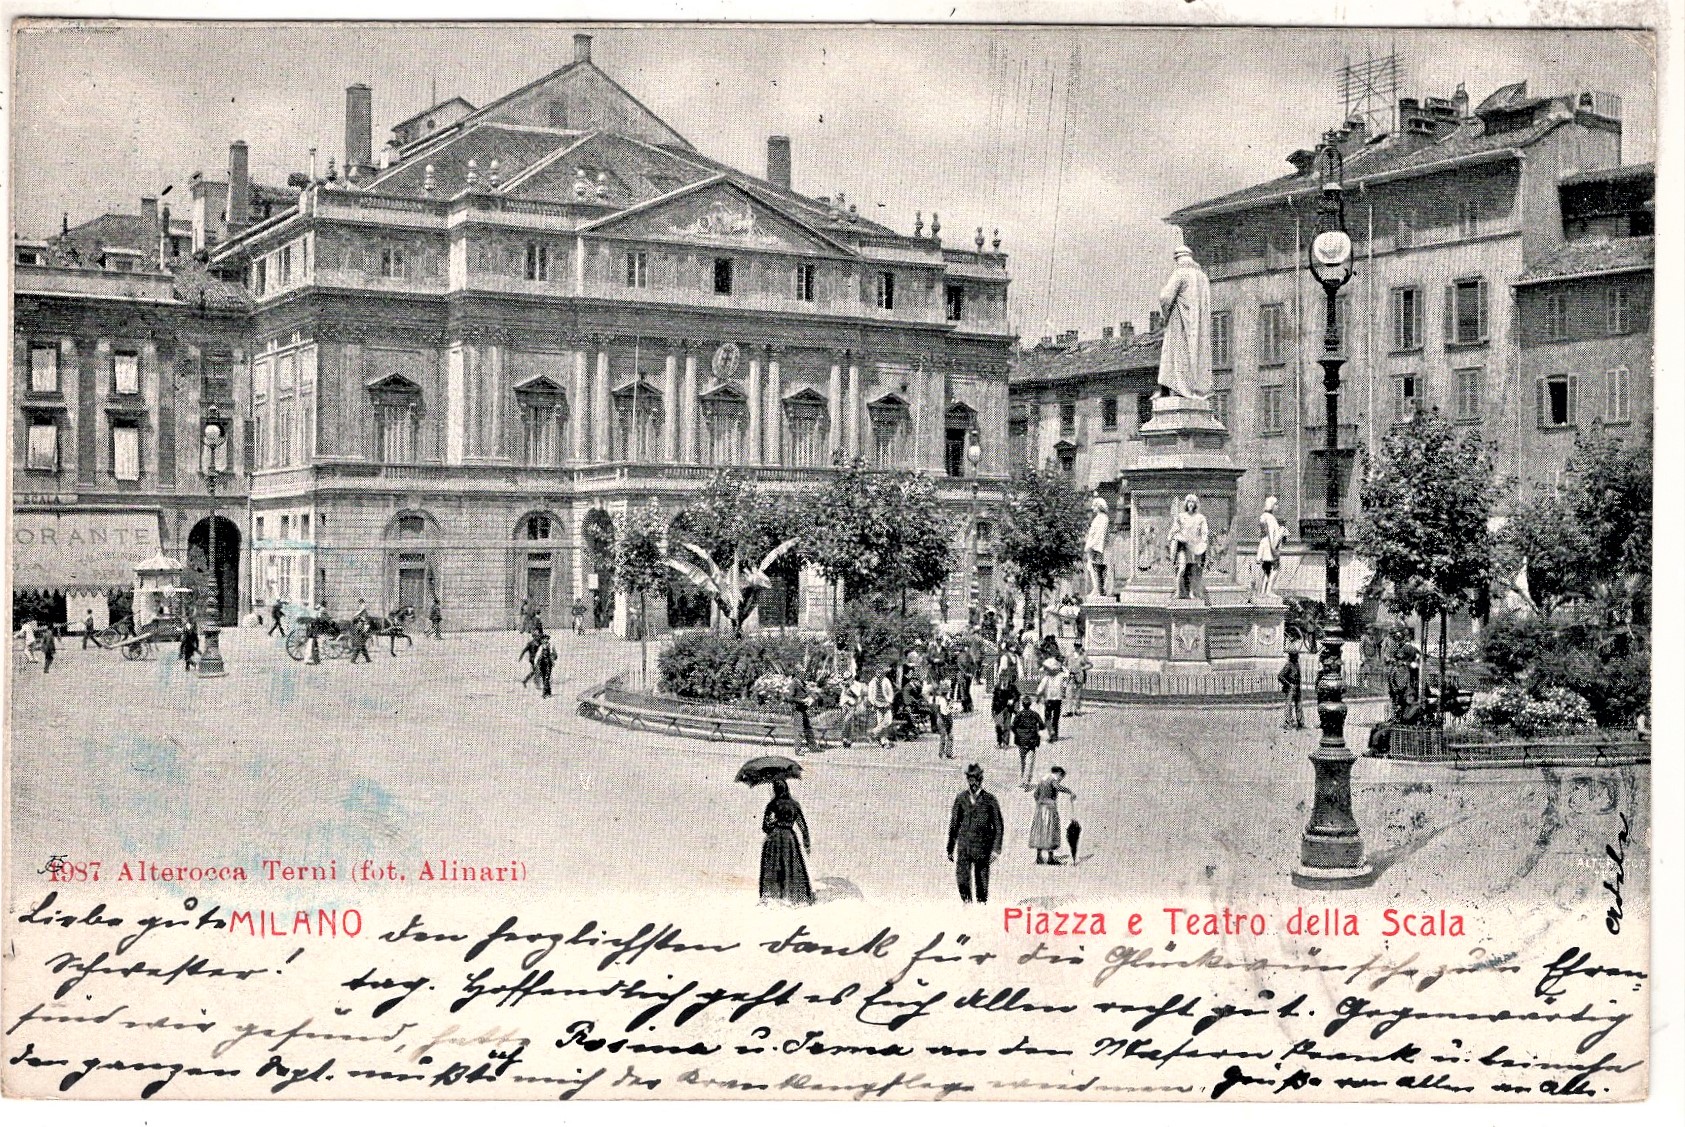 SCALA
ORANTE
ALTEROCCA
1987 Alterocca Terni (fot. Alinari)
MILANO
Piazza e Teatro della Scala
Liebe gute
Schwester!
den herzlichsten Dank für die Glückwünsche zum Ehren-
tag. Hoffendlich geht es Euch Allen recht gut. Gegenwärtig
sind wir gesund, hatte Rosina u. Irma an den Masern krank u. beinahe
den ganzen Sept. mußte ich mich der Krankenpflege widmen. Grüße von Allen an Alle.
Adele